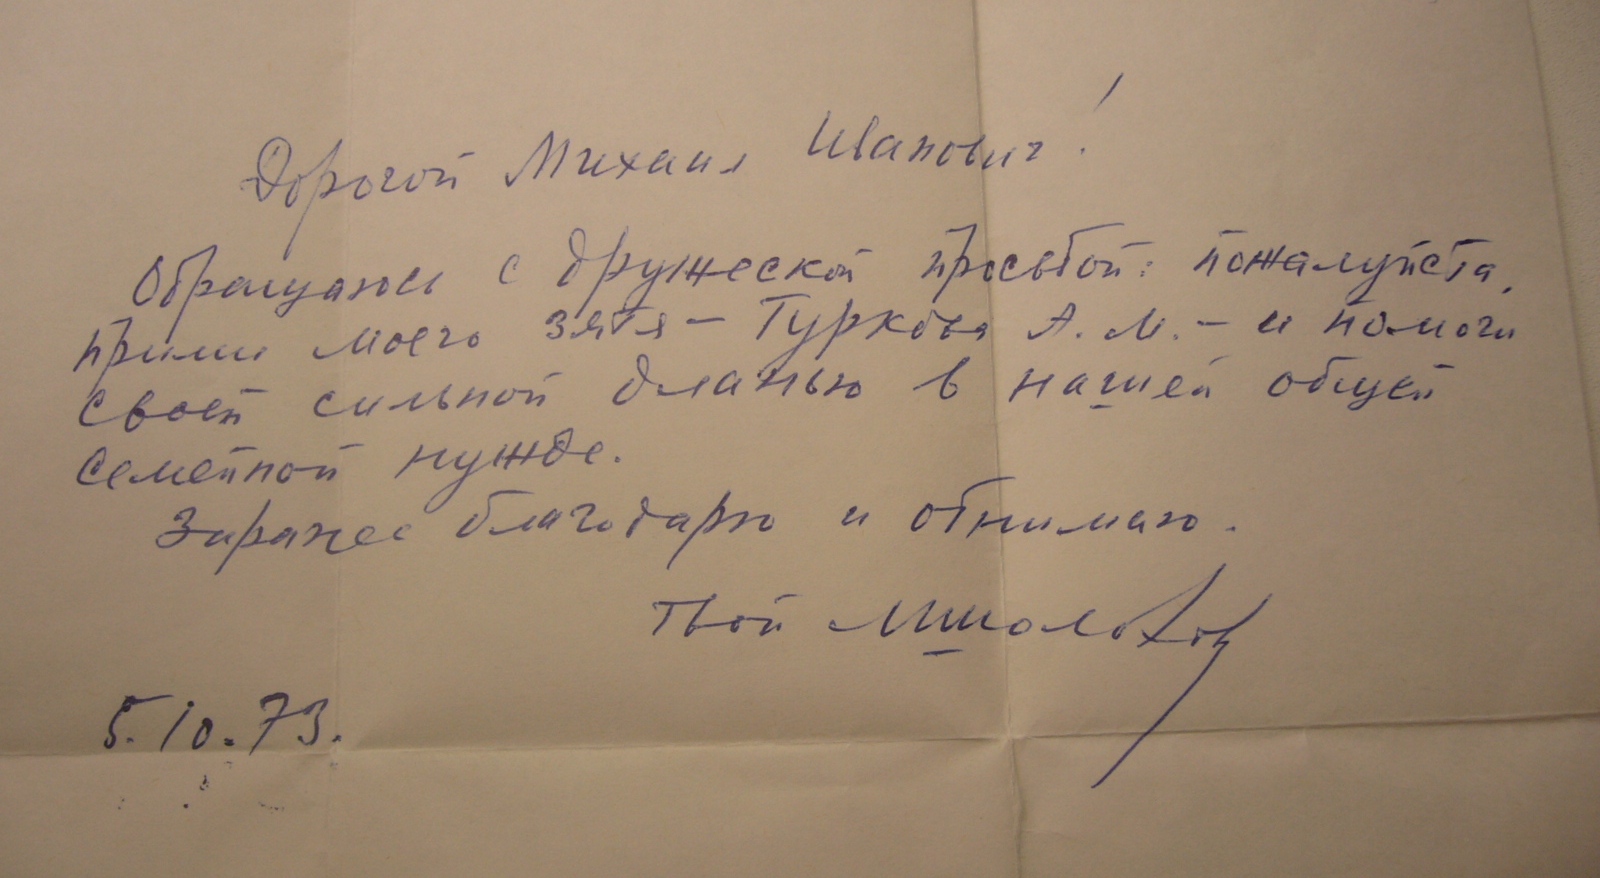 Дорогой Михаил Иванович!
Обращаюсь с дружеской просьбой: пожалуйста,
прими моего зятя – Туркова А. М. – и помоги
своей сильной дланью в нашей общей
семейной нужде.
Заранее благодарю и обнимаю.
Твой МШолохов
5.10.73.